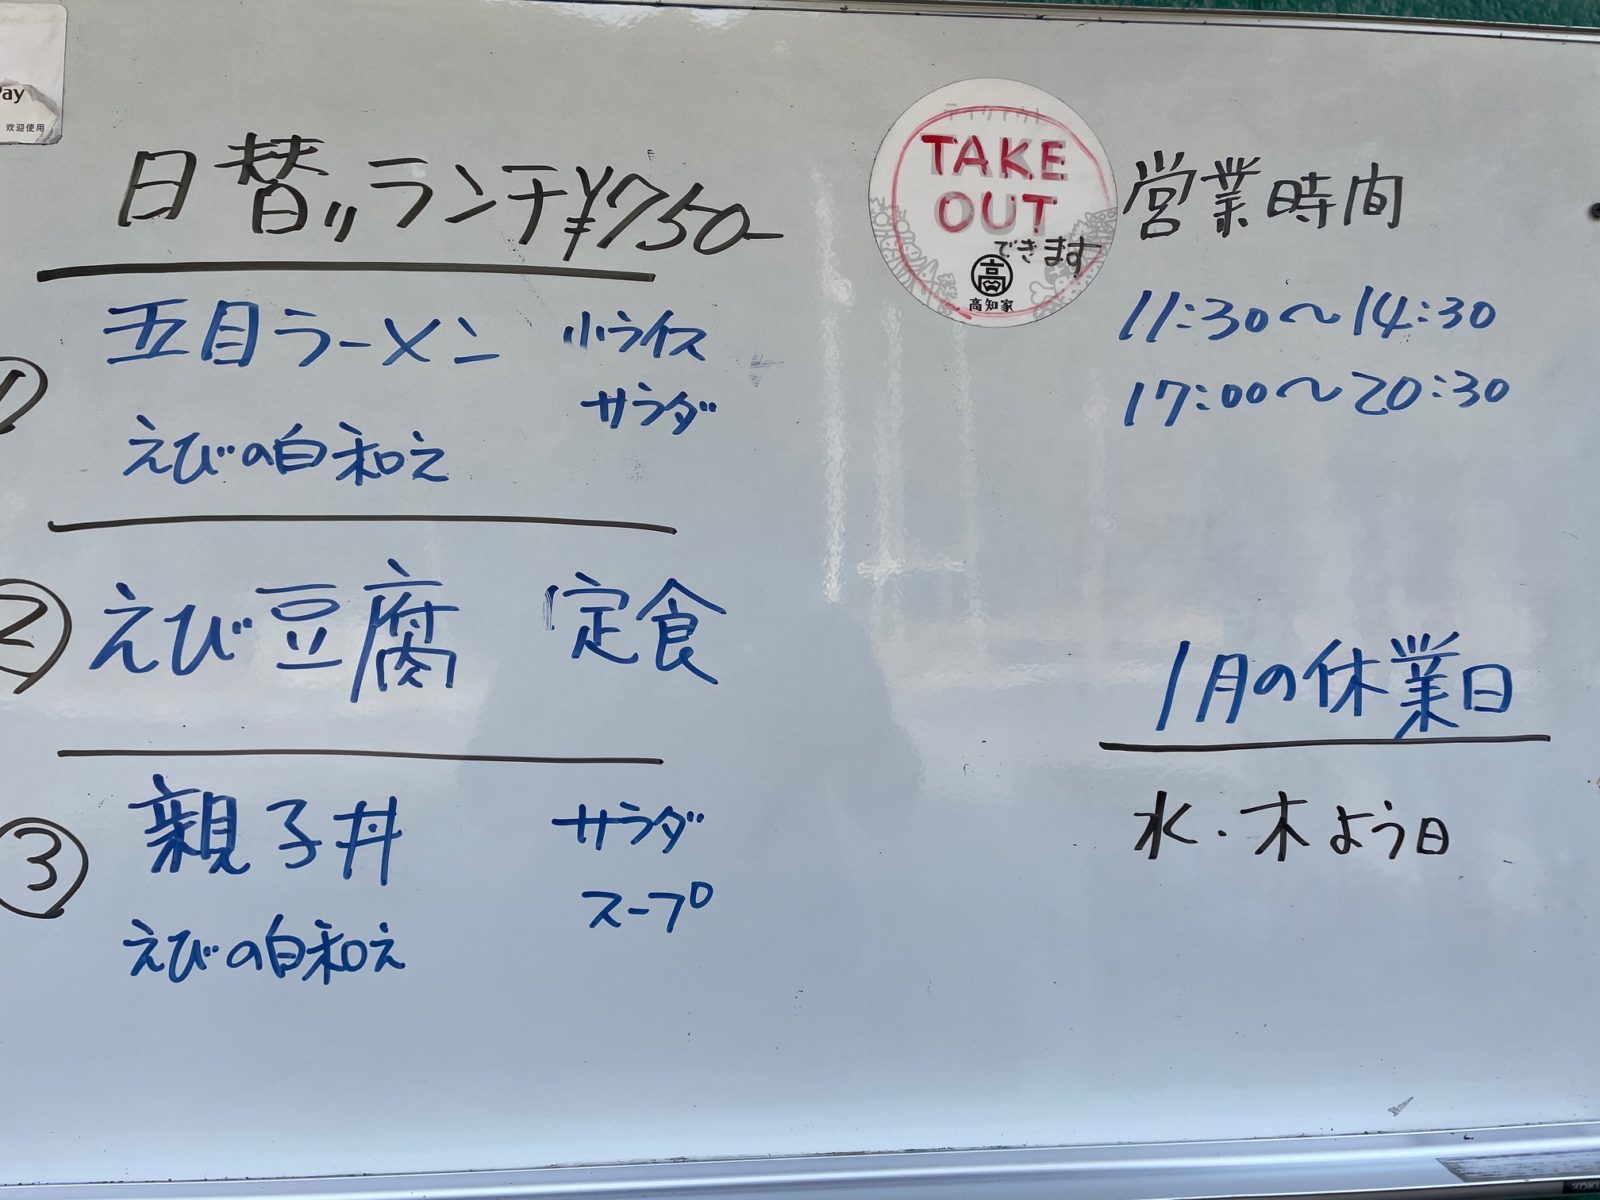 Pay
欢迎使用
日替りランチ¥750-
①
五目ラーメン 小ライス
サラダ
えびの白和え
②えび豆腐 定食
③
親子丼 サラダ
スープ
えびの白和え
テイクアウト
TAKE
OUT
できます
高
高知家
営業時間
11:30〜14:30
17:00〜20:30
1月の休業日
水・木よう日